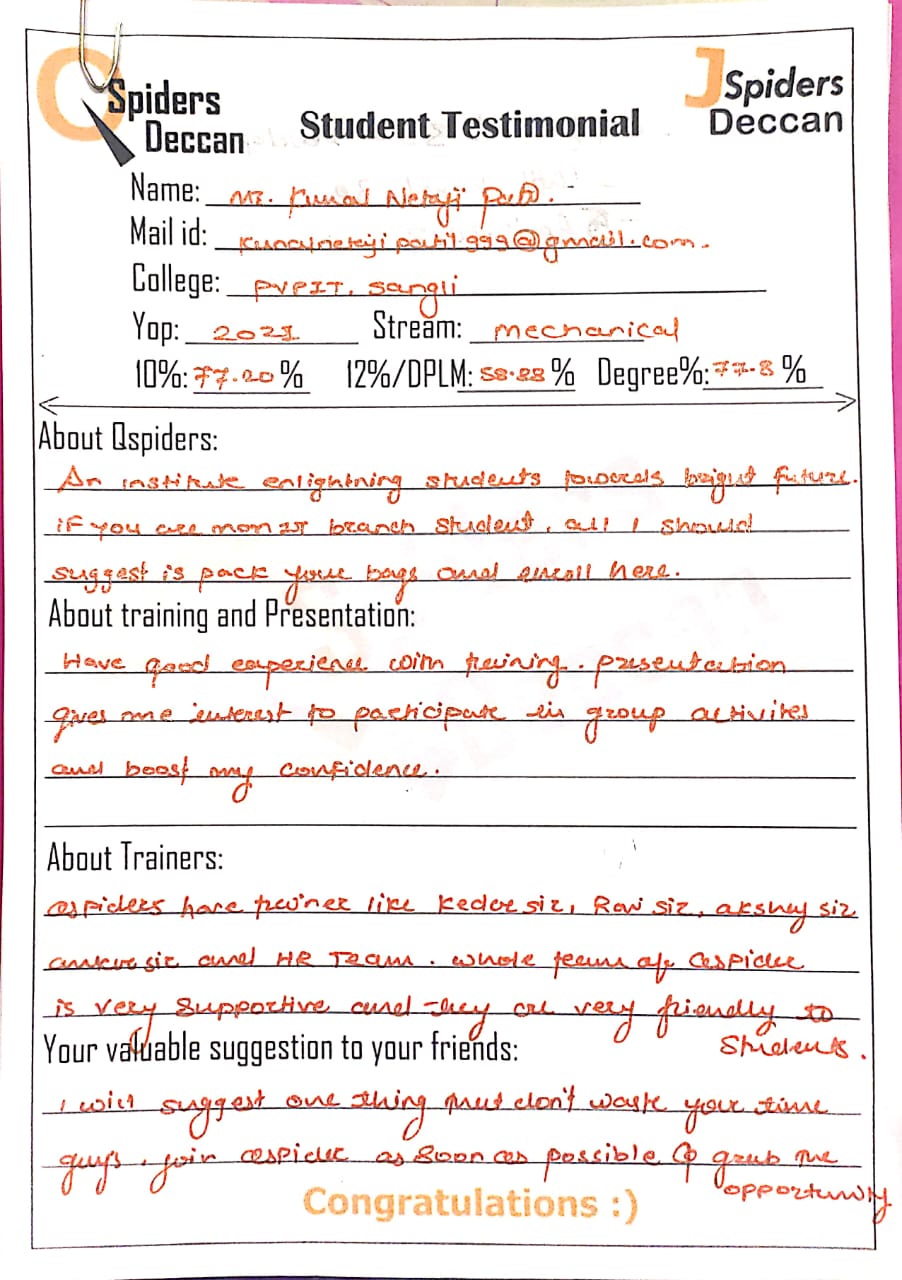 QSpiders
Deccan
JSpiders
Deccan
Student Testimonial
Name: Mr. Kunal Netaji Patil.
Mail id: kunalnetaji patil999@gmail.com.
College: PVPIT, Sangli
Yop: 2021 Stream: Mechanical
10%: 77.20 % 12%/DPLM: 58.88 % Degree%: 77.8 %
About Qspiders:
An institute enlightning students towards bright future.
if you are non IT branch student, all I should
suggest is pack your bags and enroll here.
About training and Presentation:
Have good experience with training. presentation
gives me interest to participate in group activites
and boost my confidence.
About Trainers:
Qspiders have trainer like Kedar sir, Ravi sir, akshay sir
sir and HR Team. whole team of Qspider
is very supportive and they are very friendly to
students.
Your valuable suggestion to your friends:
I will suggest one thing that don't waste your time
guys, join Qspider as soon as possible & grab the
opportunity
Congratulations :)